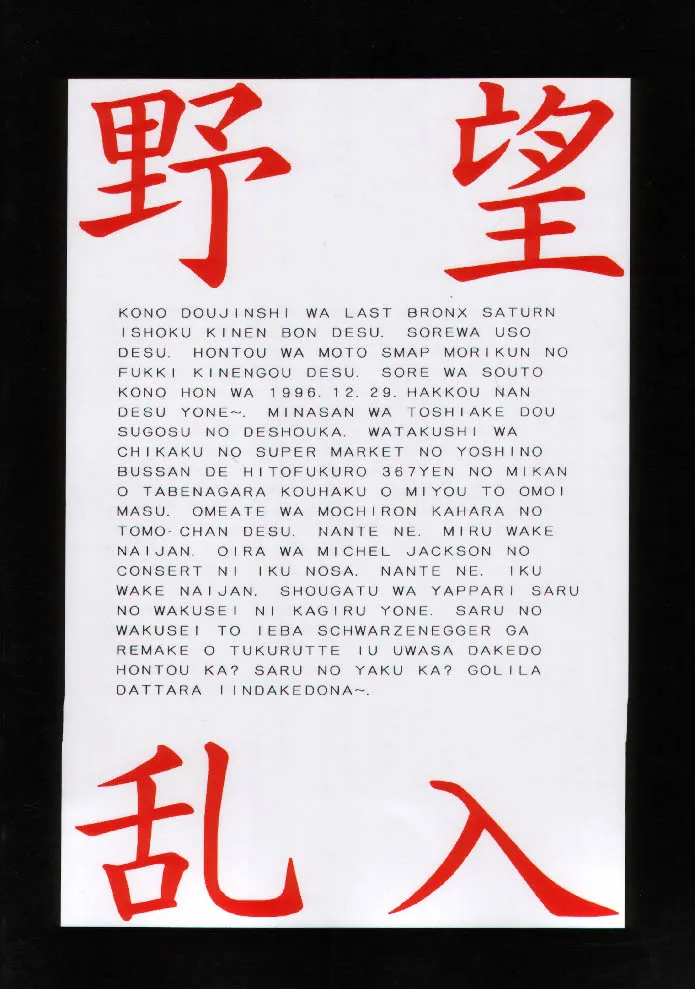 野 望
KONO DOUJINSHI WA LAST BRONX SATURN
ISHOKU KINEN BON DESU. SOREWA USO
DESU. HONTOU WA MOTO SMAP MORIKUN NO
FUKKI KINENGOU DESU. SORE WA SOUTO
KONO HON WA 1996. 12. 29. HAKKOU NAN
DESU YONE~. MINASAN WA TOSHIAKE DOU
SUGOSU NO DESHOUKA. WATAKUSHI WA
CHIKAKU NO SUPER MARKET NO YOSHINO
BUSSAN DE HITOFUKURO 367YEN NO MIKAN
O TABENAGARA KOUHAKU O MIYOU TO OMOI
MASU. OMEATE WA MOCHIRON KAHARA NO
TOMO-CHAN DESU. NANTE NE. MIRU WAKE
NAIJAN. OIRA WA MICHEL JACKSON NO
CONSERT NI IKU NOSA. NANTE NE. IKU
WAKE NAIJAN. SHOUGATU WA YAPPARI SARU
NO WAKUSEI NI KAGIRU YONE. SARU NO
WAKUSEI TO IEBA SCHWARZENEGGER GA
REMAKE O TUKURUTTE IU UWASA DAKEDO
HONTOU KA? SARU NO YAKU KA? GOLILA
DATTARA IINDAKEDONA~.
乱 入